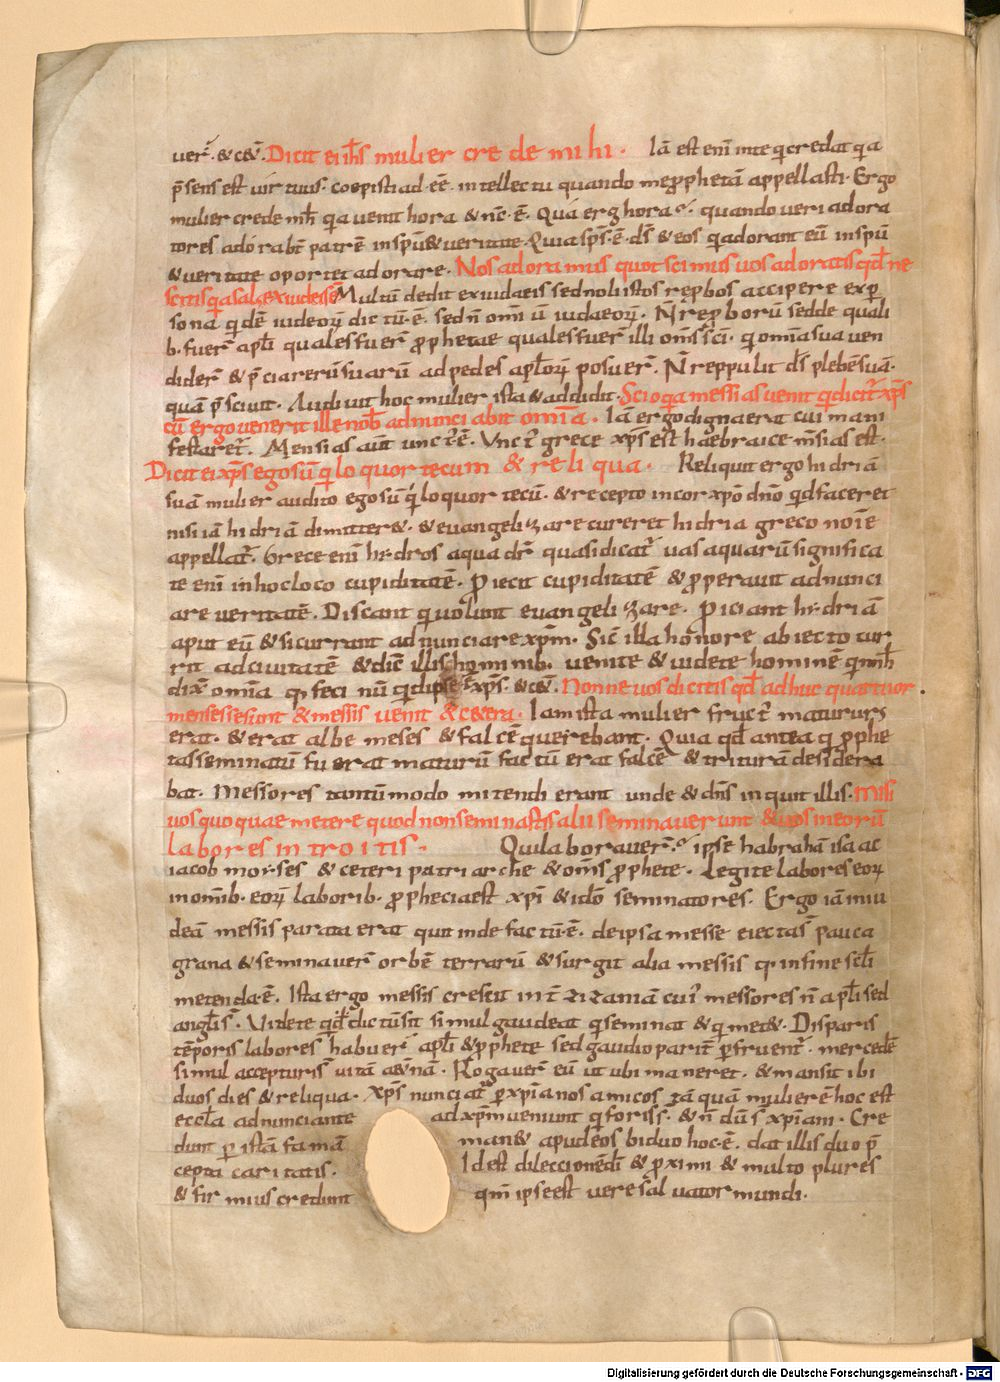 uer̄. &cet̄. Dicit ei ih̄s mulier crede mihi. Iā est enī in te qi credat qa
p̄sens est uir tuus. coepisti ad. ee. intellectu quando me pphetā appellasti. Ergo
mulier crede mh̄ qa uenit hora & nc̄. ē. Qua erg hora. quando ueri adora
tores adorabt̄ patrē in spū & ueritate. Quia sps̄. ē. ds̄ & eos qi adorant eū in spū
& ueritate oportet adorare. Nos adoramus quot scimus uos adoratis qd̄ ne
scitis qa salꝫ ex iudeis ē Multū dedit ex iudaeis sed noli istos rep̱bos accipere ex pꝑ
sona qi dē iudeoꝝ dictū. ē. sed n̄ om̄i iudaeoꝝ. N̄ rep̱borū sed de quali
b. fuer̄ apl̄i quales fuer̄ prophetae quales fuer̄ illi om̄s sc̄i. qi omnia sua uen
dider̄ & p̄cia rerū suarū ad pedes apl̄oꝝ posuer̄. N̄ reppulit ds̄ plebē suā.
quā p̄sciuit. Audiuit hoc mulier ista & addidit. Scio qa messias uenit qi dicit̄ xp̄s
cū ergo uenerit ille nob̄ adnunciabit omīa. Iā ergo dignaerat cui mani
festaret̄. Mensias aut̄ unct̄. ē. Unct̄ grece xp̄s est haebraice ms̄ias est.
Dicit ei xp̄s ego sū qi loquor tecum & reliqua. Reliquit ergo hidriā
suā mulier audito ego sū qi loquor tecū. & recepto in cor xpō dnō qd̄ faceret
nisi iā hidriā dimitter&. & euangelizare cureret hidria greco noīe
appellat̄. Grece enī hydros aqua dr̄ quasi dicat̄ uas aquarū significa
te enī in hoc loco cupiditatē. Piecit cupiditatē & pperauit adnunci
are ueritatē. Discant qi uolunt euangelizare. Piciant hydriā
aput eū & sic currant adnunciare xpm̄. Sic̄ illa honore abiecto cur
rit ad ciuitatē & dic̄ illis hominib. uenite & uidete hominē qi mh̄
dix̄ omīa q feci nū qid ipse ē xp̄s. &cet̄. Nonne uos dicitis qd̄ adhuc quattuor
menses sunt & messis uenit & cetera. Iam ista mulier fruct̄ maturus
erat. & erat albe meses & falcē querebant. Quia qd̄ antea q pphe
tas seminatū fuerat maturū factū erat falcē & triturā desidera
bat. Messores tantūmodo mitendi erant unde & dns̄ inquit illis. Misi
uos quoquae metere quod non seminastis alii seminauerunt & uos in eorū
labores introitis. Qui laborauer̄. ipse habrahā isaac
iacob moyses & ceteri patriarche & om̄s prophete. Legite labores eoꝝ
in om̄ib. eoꝝ laborib. prophecia est xpī & ido seminatores. Ergo iā in iu
deā messis parata erat quit inde factū. ē. de ipsa messe eiectas̄ pauca
grana & seminauer̄ orbē terrarū & surgit alia messis q in fine scl̄i
metenda. ē. Ista ergo messis crescit int̄ zizaniā cui messores n̄ apl̄i sed
angl̄i s̄. Uidete qd̄ dictū sit simul gaudeat qi seminat & qi met&. Disparis
tēporis labores habuer̄ apl̄i & pphete sed gaudio parit̄ pfruent̄. mercedē
simul accepturi s̄ uitā aet̄nā. Rogauer̄ eū ut ubi maneret. & mansit ibi
duos dies & reliqua. Xp̄s nunciat̄ p xp̄ianos amicos tā quā mulierē hoc est
eccl̄a adnunciante ad xpm̄ ueniunt qi foris s̄. & n̄ dū s̄ xp̄iani. Cre
dunt p istā famā man& apud eos biduo hoc. ē. dat illis duo p̄
cepta caritatis. Id est dileccionē dī & proximi & multo plures
& firmius credunt qm̄ ipse est uere saluator mundi.
Digitalisierung gefördert durch die Deutsche Forschungsgemeinschaft - DFG